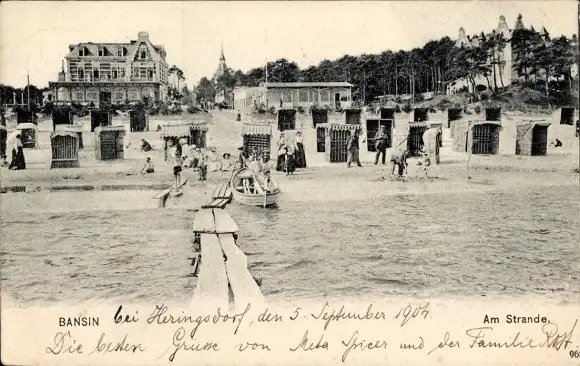 BANSIN bei Heringsdorf, den 5. September 1904 Am Strande.
Die besten Grüsse von Meta Spicer und der Familie Rost.
96